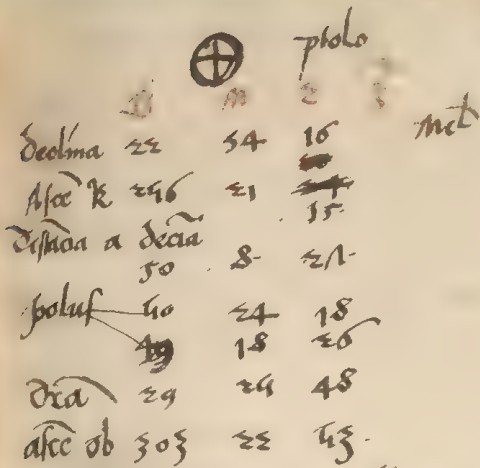 ⊕ ptolo
declina 22 54 16
Asce R 256 21 15
distancia a decima
50 8 21
polus 50 24 18
49 18 26
dra 29 25 48
asce ob 303 22 53